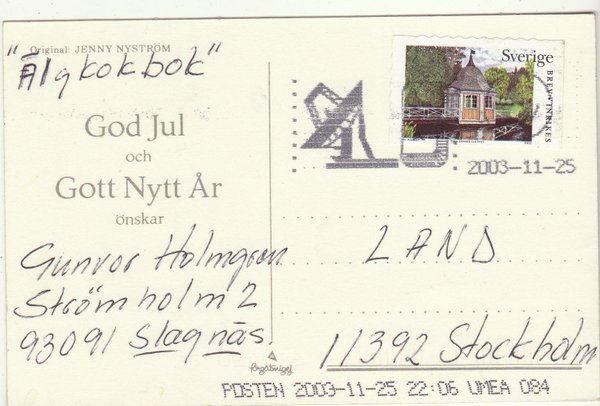 Original: JENNY NYSTRÖM
"Älgkokbok"
God Jul
och
Gott Nytt År
önskar
Gunvor Holmgren
Strömholm 2
93091 Slagnäs.
Sverige
BREV·INRIKES
2003-11-25
LAND
11392 Stockholm
POSTEN 2003-11-25 22:06 UMEA 084